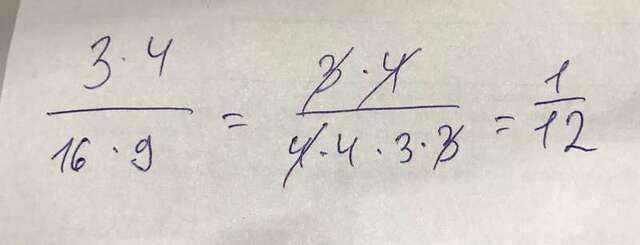 3·4 / 16·9 = 3·4 / 4·4·3·3 = 1/12